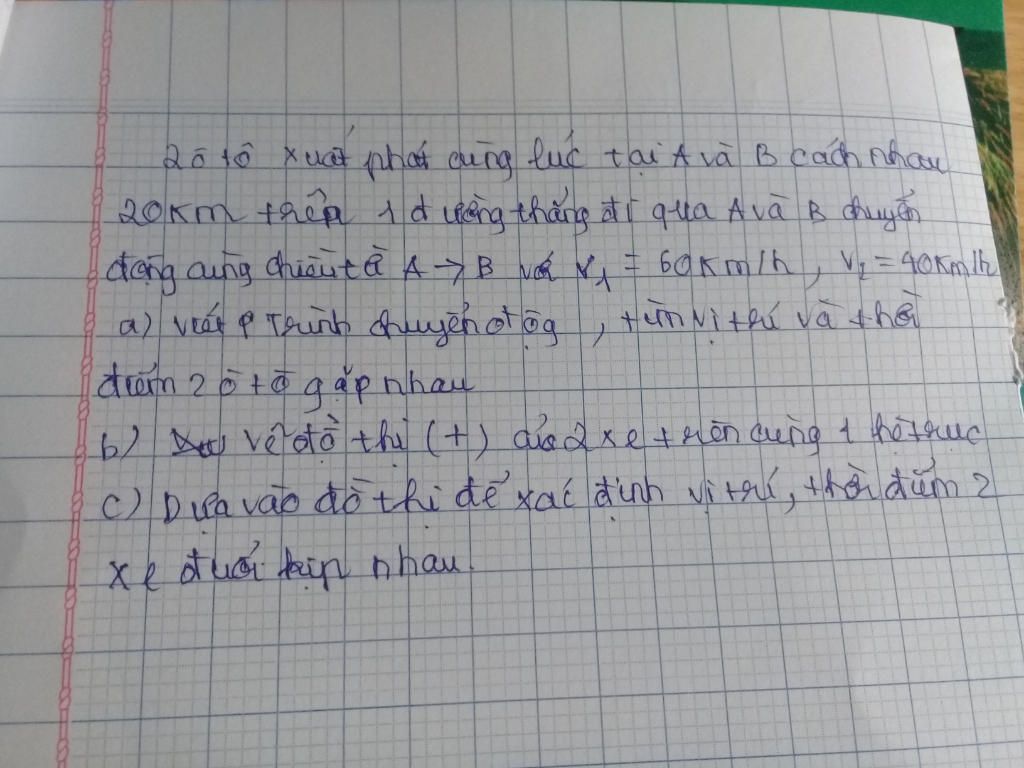 2 ô tô xuất phát cùng lúc tại A và B cách nhau
20km trên 1 đường thẳng đi qua A và B chuyển
động cùng chiều từ A → B với v₁ = 60km/h, v₂ = 40km/h
a) viết p trình chuyển động, tìm vị trí và thời
điểm 2 ô tô gặp nhau
b) vẽ đồ thị (t) của 2 xe trên cùng 1 hệ trục
c) Dựa vào đồ thị để xác định vị trí, thời điểm 2
xe đuổi kịp nhau.